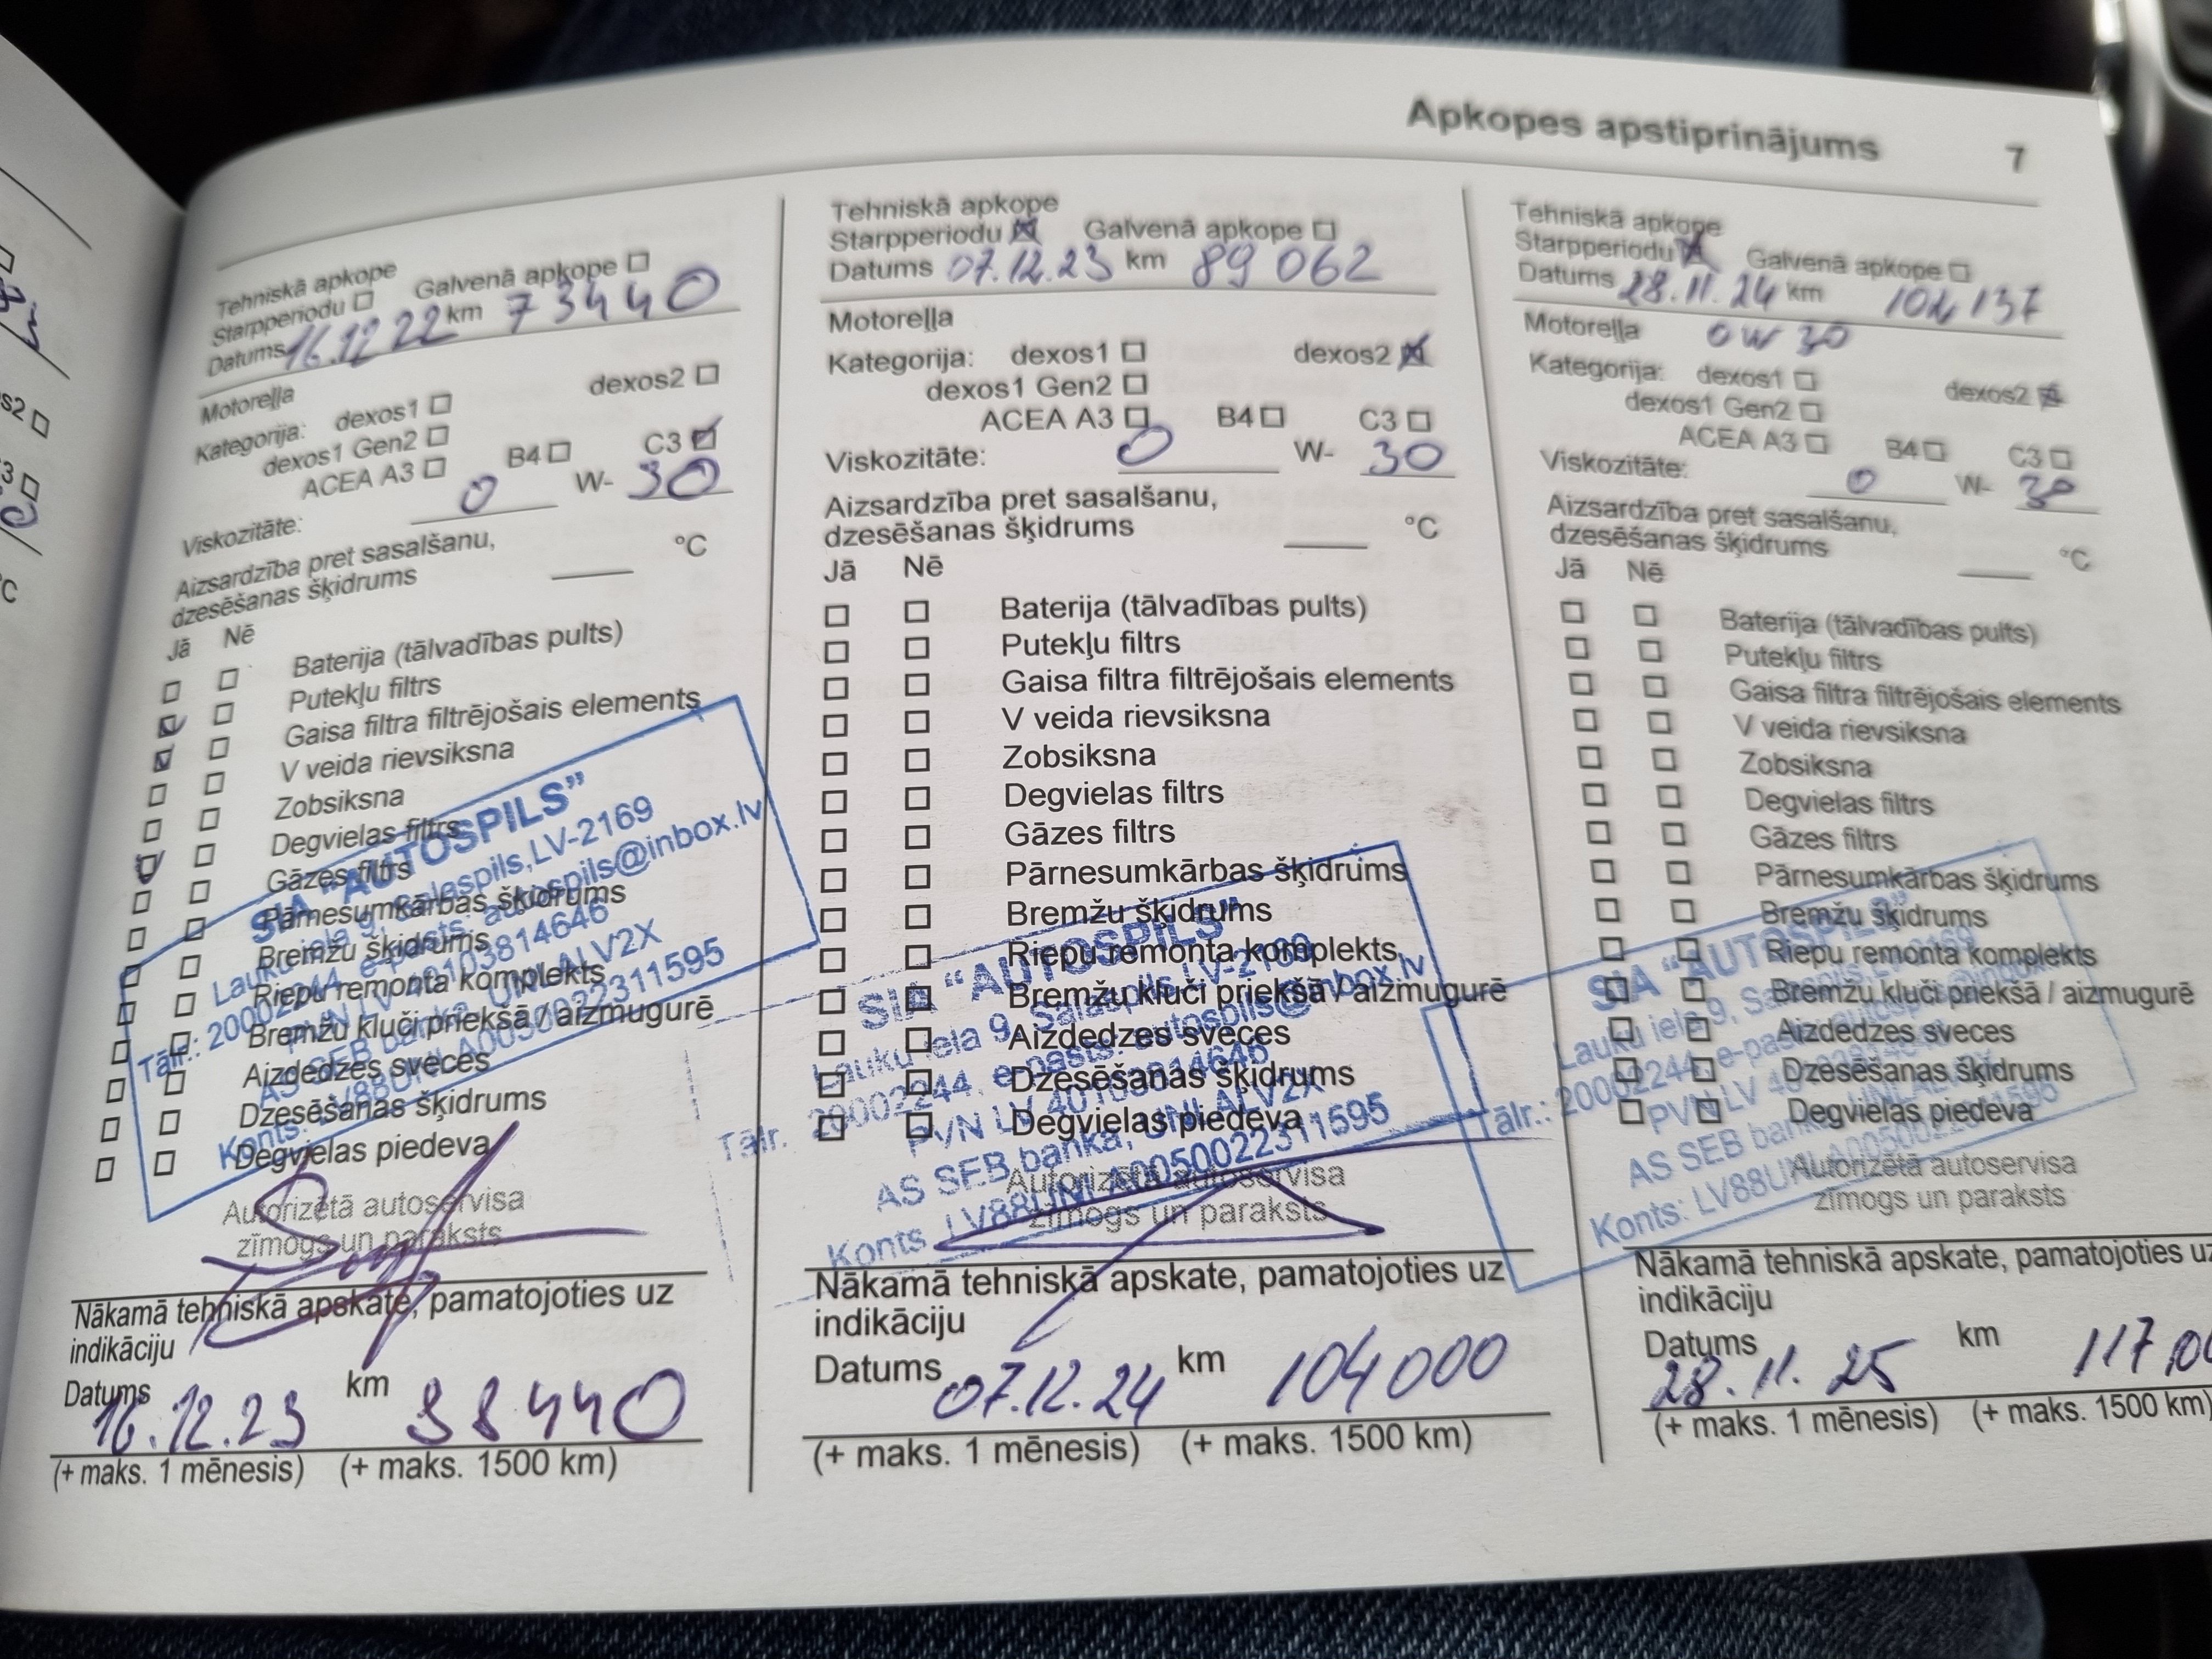 Apkopes apstiprinājums 7
Tehniskā apkope
Starpperiodu Galvenā apkope
Datums 16.12 22 km 73440
Motoreļļa
Kategorija: dexos1 dexos2
dexos1 Gen2
ACEA A3 B4 C3
Viskozitāte: 0 W- 30
Aizsardzība pret sasalšanu,
dzesēšanas šķidrums °C
Jā Nē
Baterija (tālvadības pults)
Putekļu filtrs
Gaisa filtra filtrējošais elements
V veida rievsiksna
Zobsiksna
Degvielas filtrs
Gāzes filtrs
Pārnesumkārbas šķidrums
Bremžu šķidrums
Riepu remonta komplekts
Bremžu kluči priekšā / aizmugurē
Aizdedzes sveces
Dzesēšanas šķidrums
Degvielas piedeva
SIA "AUTOSPILS"
Lauku iela 9, Salaspils, LV-2169
Tālr.: 20002244, e-pasts: autospils@inbox.lv
PVN LV 40103814646
AS SEB banka, UNLALV2X
Konts: LV88UNLA0050022311595
Autorizētā autoservisa
zīmogs un paraksts
Nākamā tehniskā apskate, pamatojoties uz
indikāciju
Datums 16.12.23 km 88440
(+ maks. 1 mēnesis) (+ maks. 1500 km)
Tehniskā apkope
Starpperiodu Galvenā apkope
Datums 07.12.23 km 89 062
Motoreļļa
Kategorija: dexos1 dexos2
dexos1 Gen2
ACEA A3 B4 C3
Viskozitāte: 0 W- 30
Aizsardzība pret sasalšanu,
dzesēšanas šķidrums °C
Jā Nē
Baterija (tālvadības pults)
Putekļu filtrs
Gaisa filtra filtrējošais elements
V veida rievsiksna
Zobsiksna
Degvielas filtrs
Gāzes filtrs
Pārnesumkārbas šķidrums
Bremžu šķidrums
Riepu remonta komplekts
Bremžu kluči priekšā / aizmugurē
Aizdedzes sveces
Dzesēšanas šķidrums
Degvielas piedeva
SIA "AUTOSPILS"
Lauku iela 9, Salaspils, LV-2169
Tālr. 20002244, e-pasts: autospils@inbox.lv
PVN LV 40103814646
AS SEB banka, UNLALV2X
Konts LV88UNLA0050022311595
Autorizētā autoservisa
zīmogs un paraksts
Nākamā tehniskā apskate, pamatojoties uz
indikāciju
Datums 07.12.24 km 104000
(+ maks. 1 mēnesis) (+ maks. 1500 km)
Tehniskā apkope
Starpperiodu Galvenā apkope
Datums 28.11.24 km 104 137
Motoreļļa 0W 30
Kategorija: dexos1 dexos2
dexos1 Gen2
ACEA A3 B4 C3
Viskozitāte: 0 W- 30
Aizsardzība pret sasalšanu,
dzesēšanas šķidrums °C
Jā Nē
Baterija (tālvadības pults)
Putekļu filtrs
Gaisa filtra filtrējošais elements
V veida rievsiksna
Zobsiksna
Degvielas filtrs
Gāzes filtrs
Pārnesumkārbas šķidrums
Bremžu šķidrums
Riepu remonta komplekts
Bremžu kluči priekšā / aizmugurē
Aizdedzes sveces
Dzesēšanas šķidrums
Degvielas piedeva
SIA "AUTOSPILS"
Lauku iela 9,
Tālr.: 20002244,
PVN LV
AS SEB banka,
Konts: LV88UNLA0050022311595
Autorizētā autoservisa
zīmogs un paraksts
Nākamā tehniskā apskate, pamatojoties
indikāciju
Datums 28.11.25 km
(+ maks. 1 mēnesis) (+ maks. 1500 km)